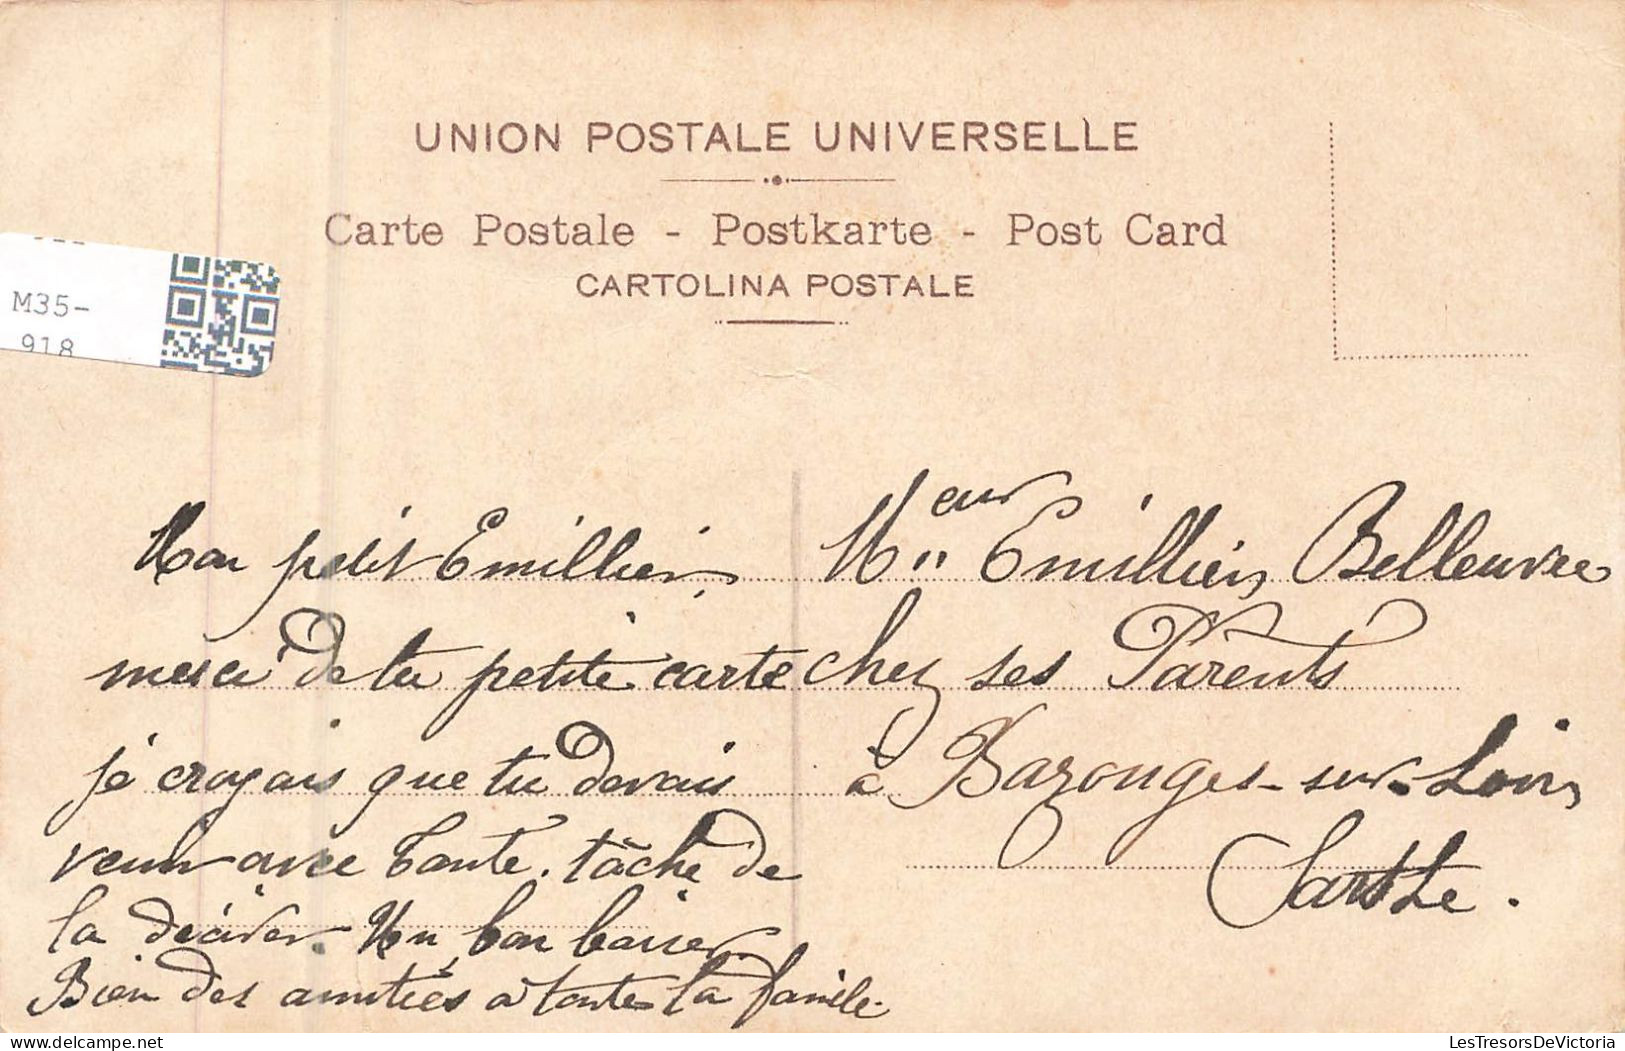 UNION POSTALE UNIVERSELLE
Carte Postale - Postkarte - Post Card
CARTOLINA POSTALE
M35-
918
Mon petit Emillien,
merci de ta petite carte
je croyais que tu devais
venir avec Tante. tâche de
la décider. Un bon baiser
Bien des amitiés à toute la famille
Mr Emillien Belleuvre
chez ses Parents
à Bazouges-sur-Loir
Sarthe.
LesTresorsDeVictoria